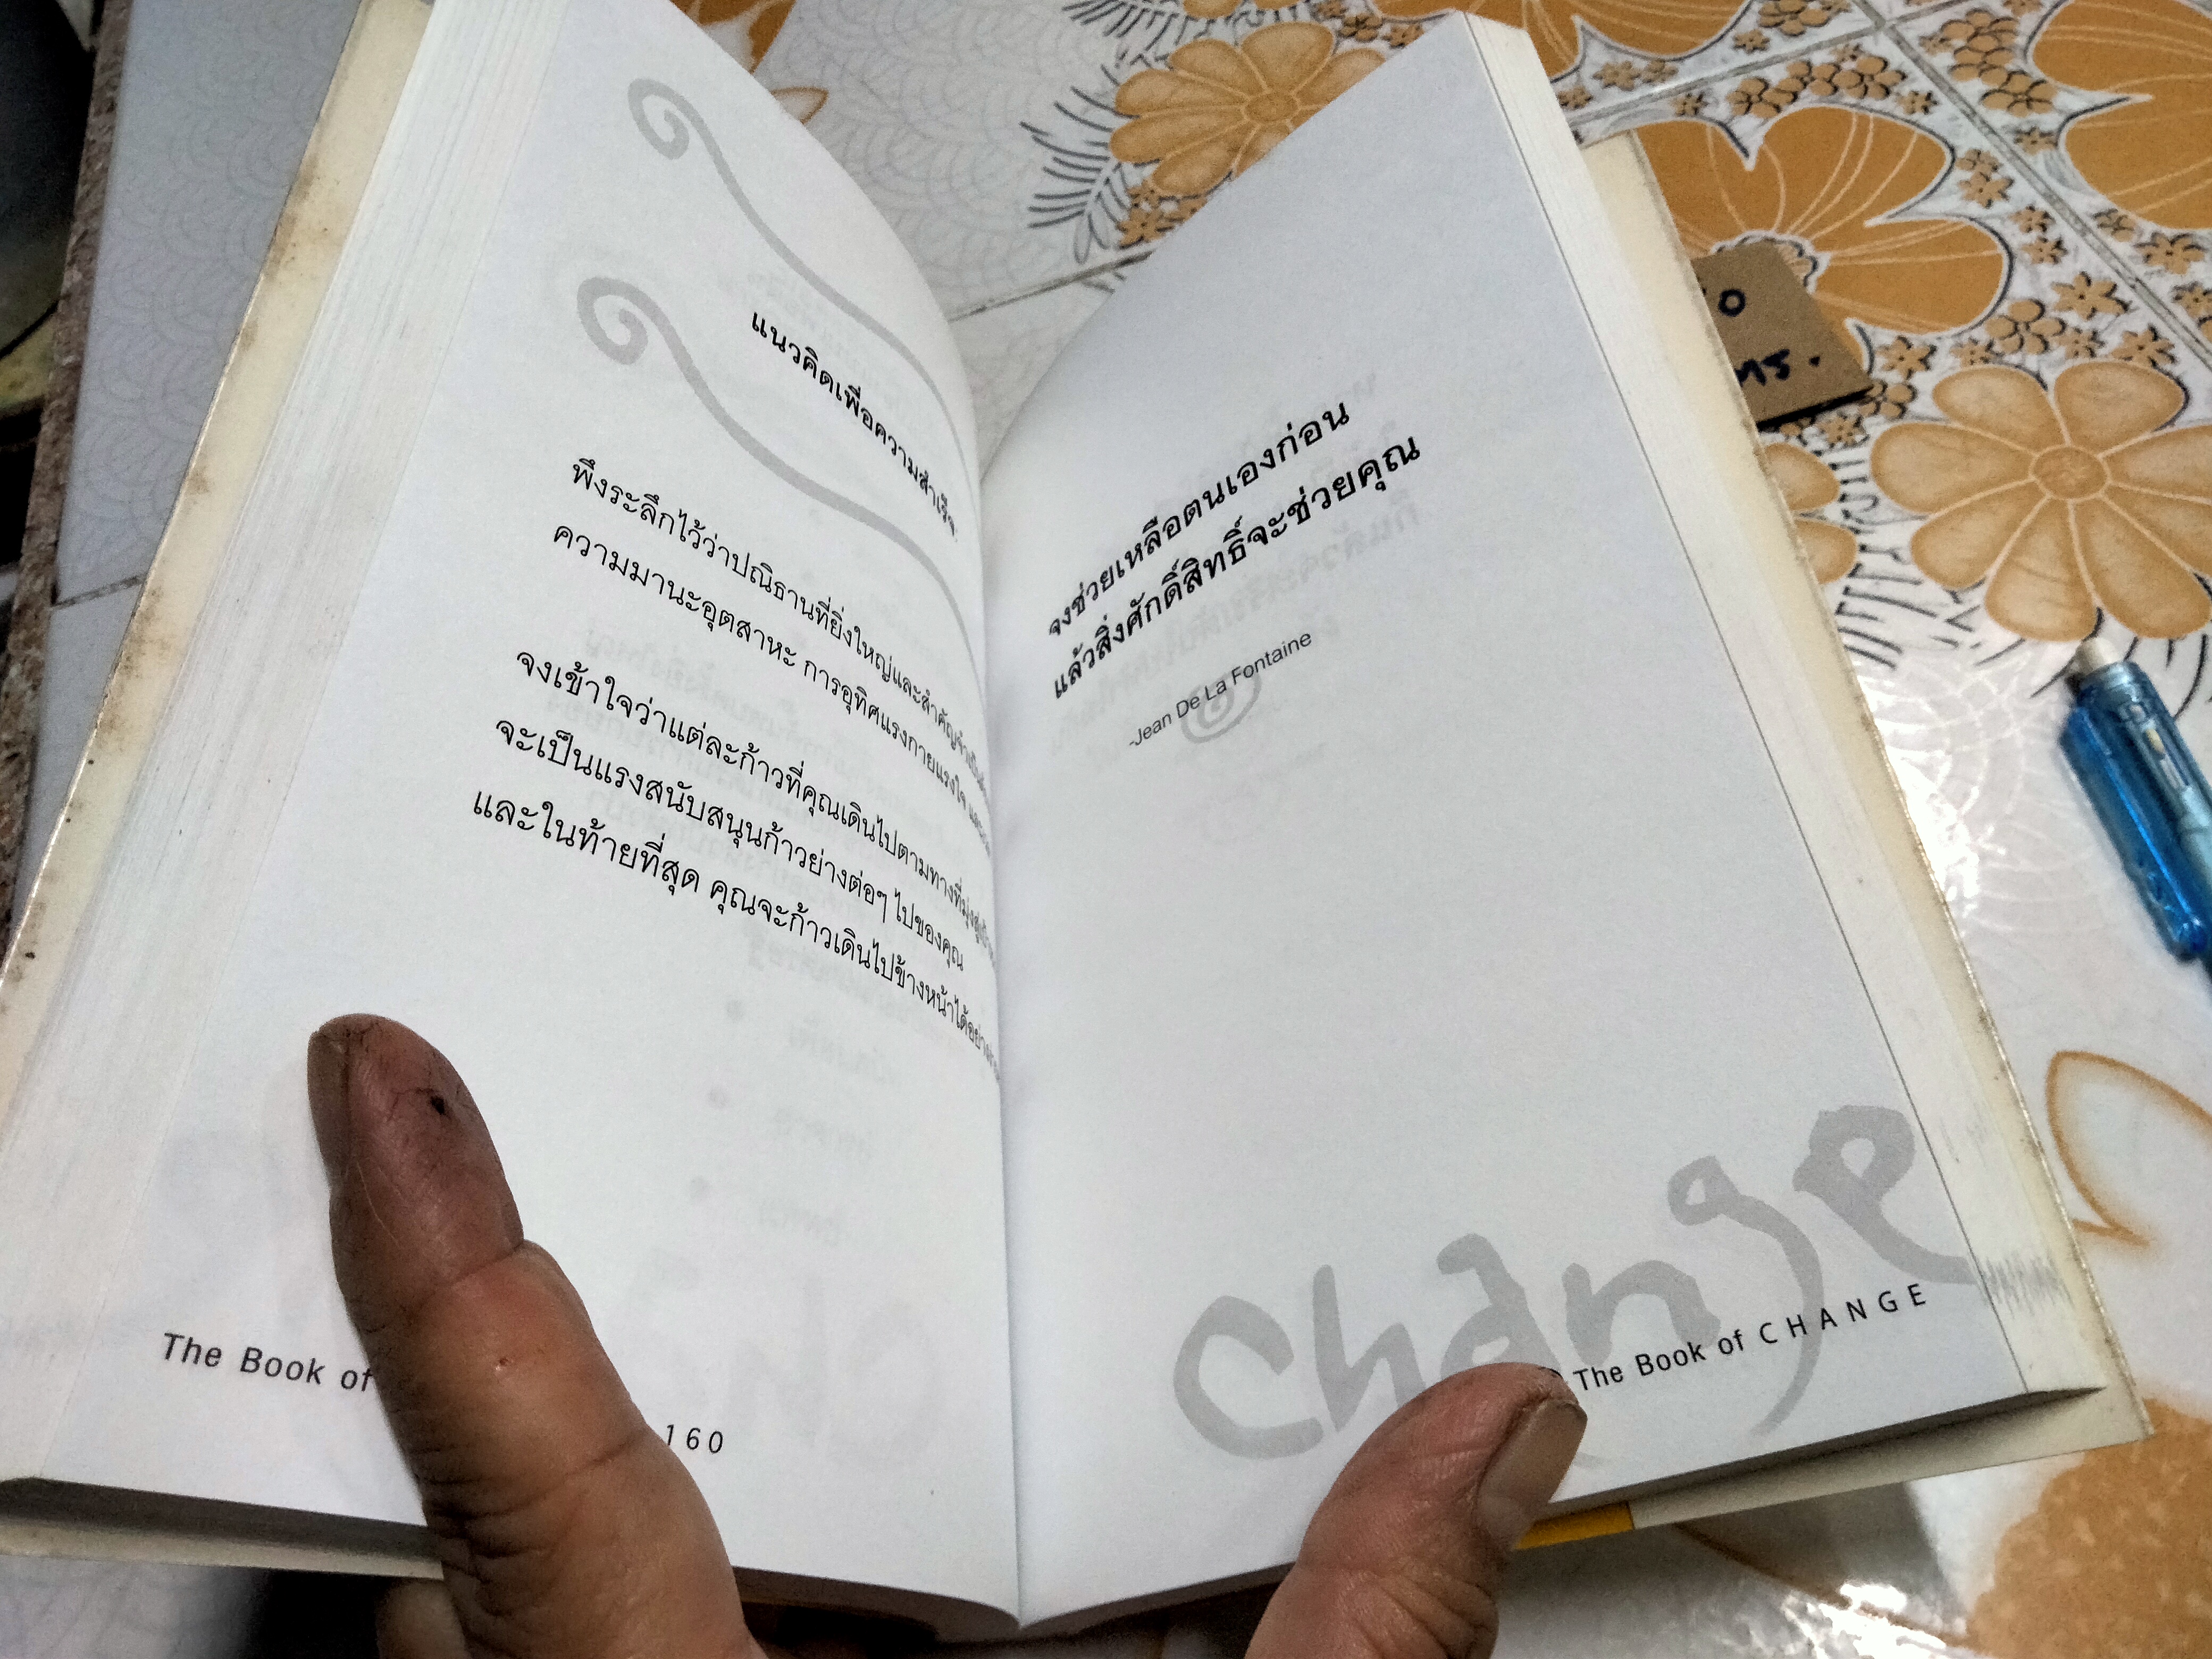 แนวคิดเพื่อความสำเร็จ
พึงระลึกไว้ว่าปณิธานที่ยิ่งใหญ่และสำคัญ
ความมานะอุตสาหะ การอุทิศแรงกายแรงใจ
จงเข้าใจว่าแต่ละก้าวที่คุณเดินไปตามทางที่มุ่งสู่
จะเป็นแรงสนับสนุนก้าวย่างต่อๆ ไปของคุณ
และในท้ายที่สุด คุณจะก้าวเดินไปข้างหน้าได้อย่าง
The Book of
160
จงช่วยเหลือตนเองก่อน
แล้วสิ่งศักดิ์สิทธิ์จะช่วยคุณ
-Jean De La Fontaine
Change
The Book of CHANGE